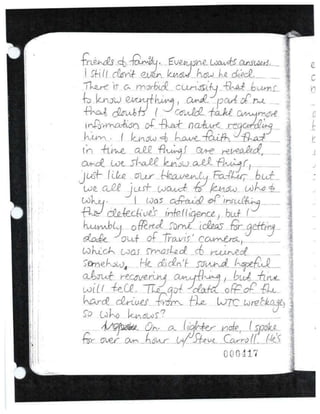 friends & family. Everyone wants answers.
I still don't even know how he died.
There is a morbid curiosity that burns
to know everything, and part of me
that doubts I could take anymore
information of that nature regarding
him. I know & have faith that
in time all things are revealed,
and we shall know all things,
just like our Heavenly Father, but
we all just want to know who &
why. I was afraid of insulting
the detective's intelligence, but I
humbly offered some ideas for getting
data out of Travis' camera,
which was smashed & ruined
somehow. He didn't sound hopeful
about recovering anything, but time
will tell. They got data off of the
hard drives from the WTC wreckage,
so who knows?
On a lighter note, I spoke
for over an hour w/ Steve Carroll. He's
000417